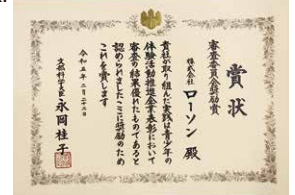 賞状
審査委員会奨励賞
株式会社 ローソン 殿
貴社が取り組んだ実践は青少年の
体験活動推進企業表彰において
審査の結果優れたものであると
認められましたここに奨励のため
これを賞します
令和五年二月二十二日
文部科学大臣 永岡桂子